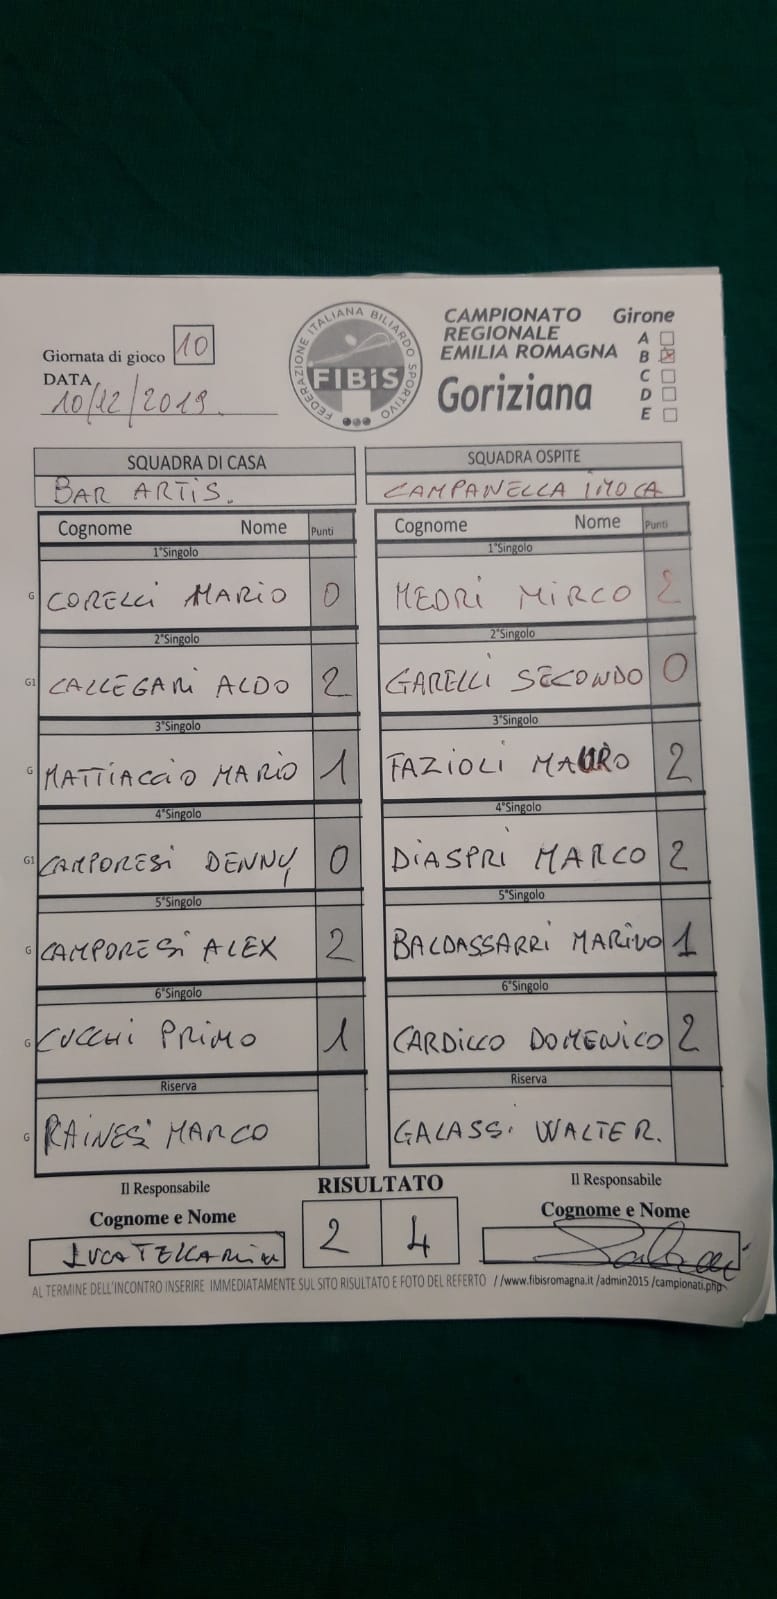 Giornata di gioco 10
DATA
10/12/2019
FEDERAZIONE ITALIANA BILIARDO SPORTIVO
FIBiS
CAMPIONATO
REGIONALE
EMILIA ROMAGNA
Goriziana
Girone
A
B
C
D
E
SQUADRA DI CASA
BAR ARTIS.
SQUADRA OSPITE
CAMPANELLA iMOLA
Cognome Nome Punti
Cognome Nome Punti
1°Singolo
1°Singolo
G CORELLi MARIO 0
MEDRi MiRCO 2
2°Singolo
2°Singolo
G1 CALLEGARi ALDO 2
GARELLi SECONDO 0
3°Singolo
3°Singolo
G MATTiACCiO MARIO 1
FAZIOLi MAURO 2
4°Singolo
4°Singolo
G1 CAMPORESi DENNY 0
DiASPRi MARCO 2
5°Singolo
5°Singolo
G CAMPORESi ALEX 2
BALDASSARRi MARiNO 1
6°Singolo
6°Singolo
G CUCCHi PRiMO 1
CARDiLLO DOMENiCO 2
Riserva
Riserva
G RAiNESi MARCO
GALASSi WALTER.
Il Responsabile
RISULTATO
Il Responsabile
Cognome e Nome
2 4
Cognome e Nome
AL TERMINE DELL'INCONTRO INSERIRE IMMEDIATAMENTE SUL SITO RISULTATO E FOTO DEL REFERTO //www.fibisromagna.it /admin2015 /campionati.php